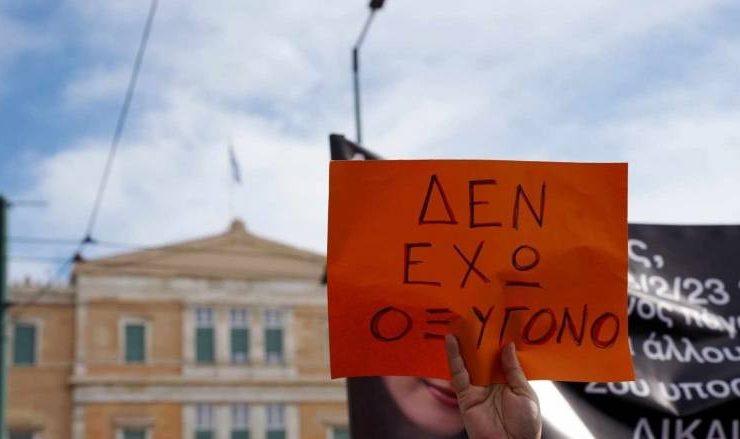 ΔΕΝ
ΕΧΩ
ΟΞΥΓΟΝΟ
2/23
άλλου
σου υποσ
ΔΙΚΑΙ